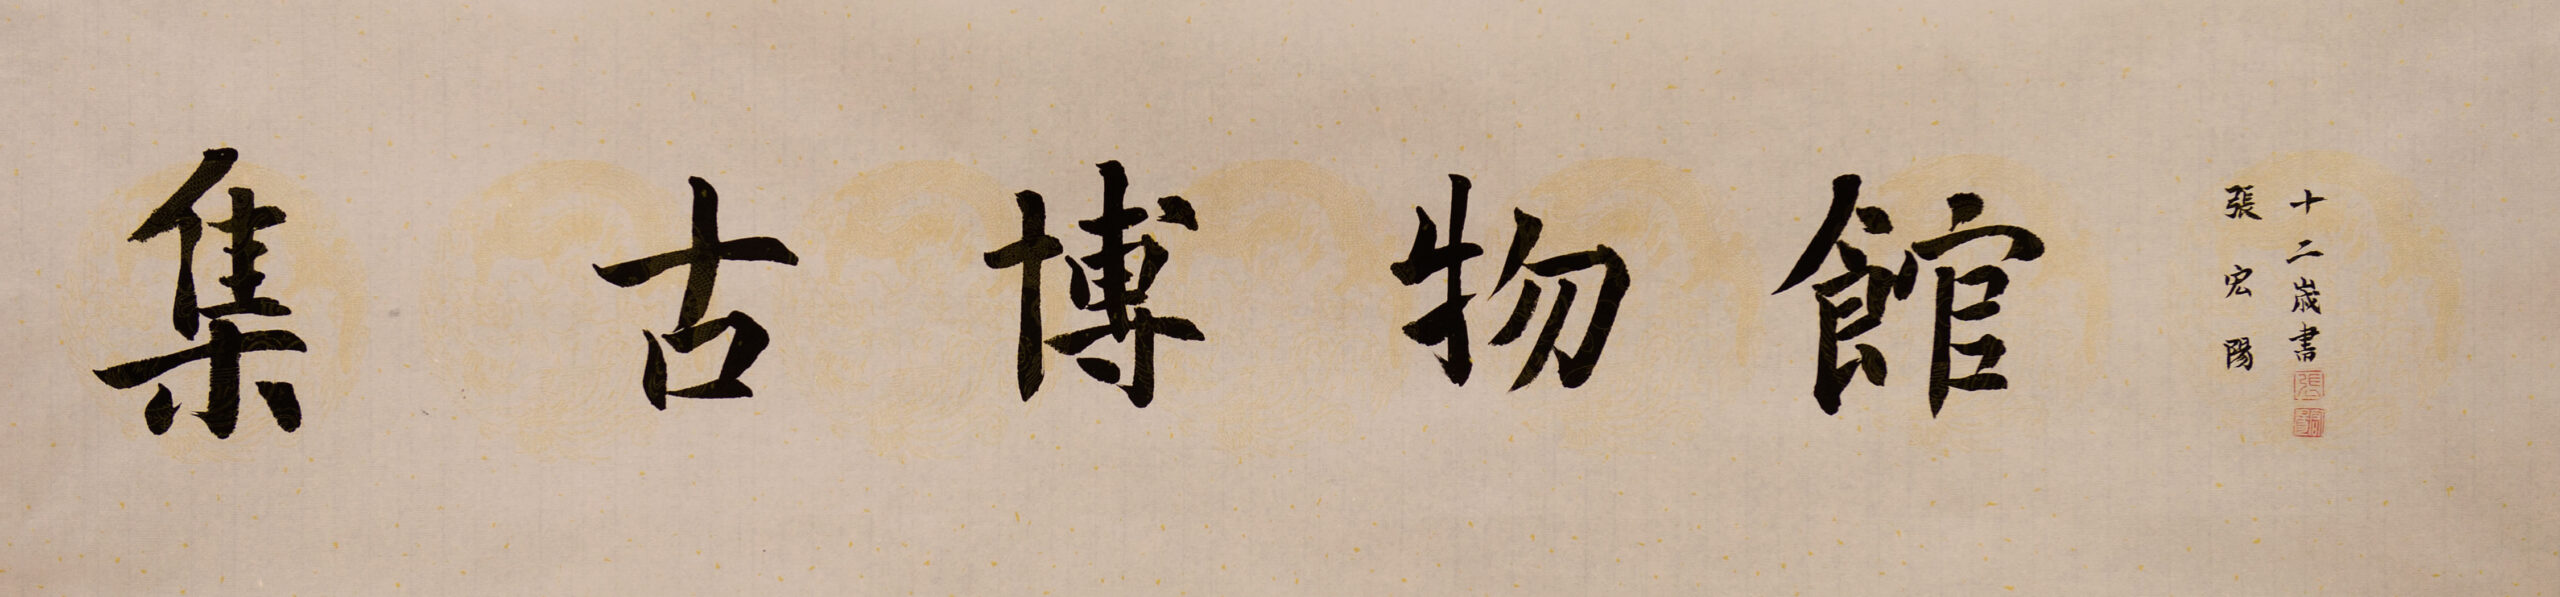 集古博物館
張宏陽
十二歲書
張